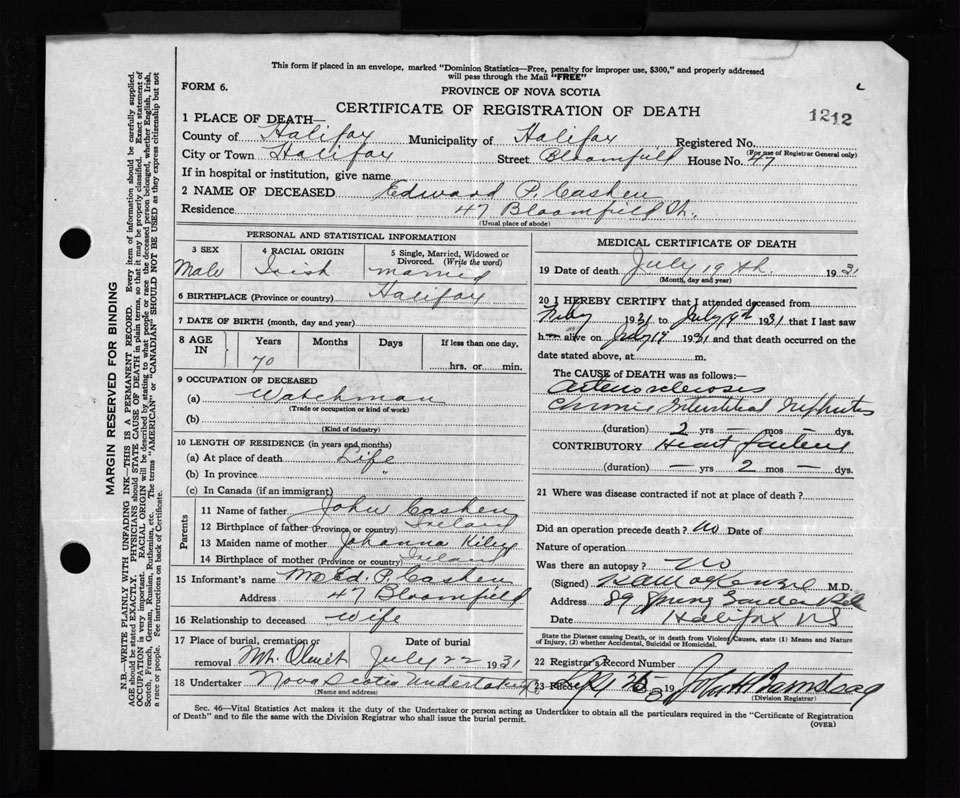 This form if placed in an envelope, marked "Dominion Statistics—Free, penalty for improper use, $300," and properly addressed
will pass through the Mail "FREE"
FORM 6.
PROVINCE OF NOVA SCOTIA
CERTIFICATE OF REGISTRATION OF DEATH
1212
1 PLACE OF DEATH—
County of Halifax Municipality of Halifax Registered No.
(For use of Registrar General only)
City or Town Halifax Street Bloomfield House No. 47
If in hospital or institution, give name
2 NAME OF DECEASED Edward P. Cashen
Residence 47 Bloomfield St.
(Usual place of abode)
PERSONAL AND STATISTICAL INFORMATION
3 SEX 4 RACIAL ORIGIN 5 Single, Married, Widowed or
Divorced. (Write the word)
Male Irish married
6 BIRTHPLACE (Province or country) Halifax
7 DATE OF BIRTH (month, day and year)
8 AGE IN Years Months Days If less than one day,
70 hrs. or min.
9 OCCUPATION OF DECEASED
(a) Watchman
(Trade or occupation or kind of work)
(b)
(Kind of industry)
10 LENGTH OF RESIDENCE (in years and months)
(a) At place of death Life
(b) In province
(c) In Canada (if an immigrant)
Parents
11 Name of father John Cashen
12 Birthplace of father (Province or country) Ireland
13 Maiden name of mother Johanna Kiley
14 Birthplace of mother (Province or country) Ireland
15 Informant's name Mrs Ed. P. Cashen
Address 47 Bloomfield
16 Relationship to deceased wife
17 Place of burial, cremation or removal Mt. Olivet
Date of burial July 22 1931
18 Undertaker Nova Scotia Undertaking
(Name and address)
MEDICAL CERTIFICATE OF DEATH
19 Date of death July 19th. 1931
(Month, day and year)
20 I HEREBY CERTIFY that I attended deceased from
1931 to July 19th 1931 that I last saw
h alive on July 19 1931 and that death occurred on the
date stated above, at m.
The CAUSE of DEATH was as follows:—
Arteriosclerosis
Chronic Interstitial Nephritis
(duration) 2 yrs — mos — dys.
CONTRIBUTORY Heart failure
(duration) — yrs 2 mos — dys.
21 Where was disease contracted if not at place of death?
Did an operation precede death? No Date of
Nature of operation
Was there an autopsy? No
(Signed) MacKenzie M.D.
Address 89 Spring Garden Rd
Date Halifax NS
State the Disease causing Death, or in death from Violent Causes, state (1) Means and Nature
of Injury, (2) whether Accidental, Suicidal or Homicidal.
22 Registrar's Record Number
23 Filed 19
(Division Registrar)
Sec. 46—Vital Statistics Act makes it the duty of the Undertaker or person acting as Undertaker to obtain all the particulars required in the "Certificate of Registration
of Death" and to file the same with the Division Registrar who shall issue the burial permit.
(OVER)
MARGIN RESERVED FOR BINDING
N.B.—WRITE PLAINLY WITH UNFADING INK—THIS IS A PERMANENT RECORD. Every item of information should be carefully supplied.
AGE should be stated EXACTLY. PHYSICIANS should STATE CAUSE OF DEATH in plain terms, so that it may be properly classified. Exact statement of
OCCUPATION is very important. RACIAL ORIGIN will be described by stating to what people or race the deceased person belonged, whether English, Irish,
Scotch, French, German, Russian, Ruthenian, etc. The terms "AMERICAN" or "CANADIAN" SHOULD NOT BE USED as they express citizenship but not
a race or people. See instructions on back of Certificate.